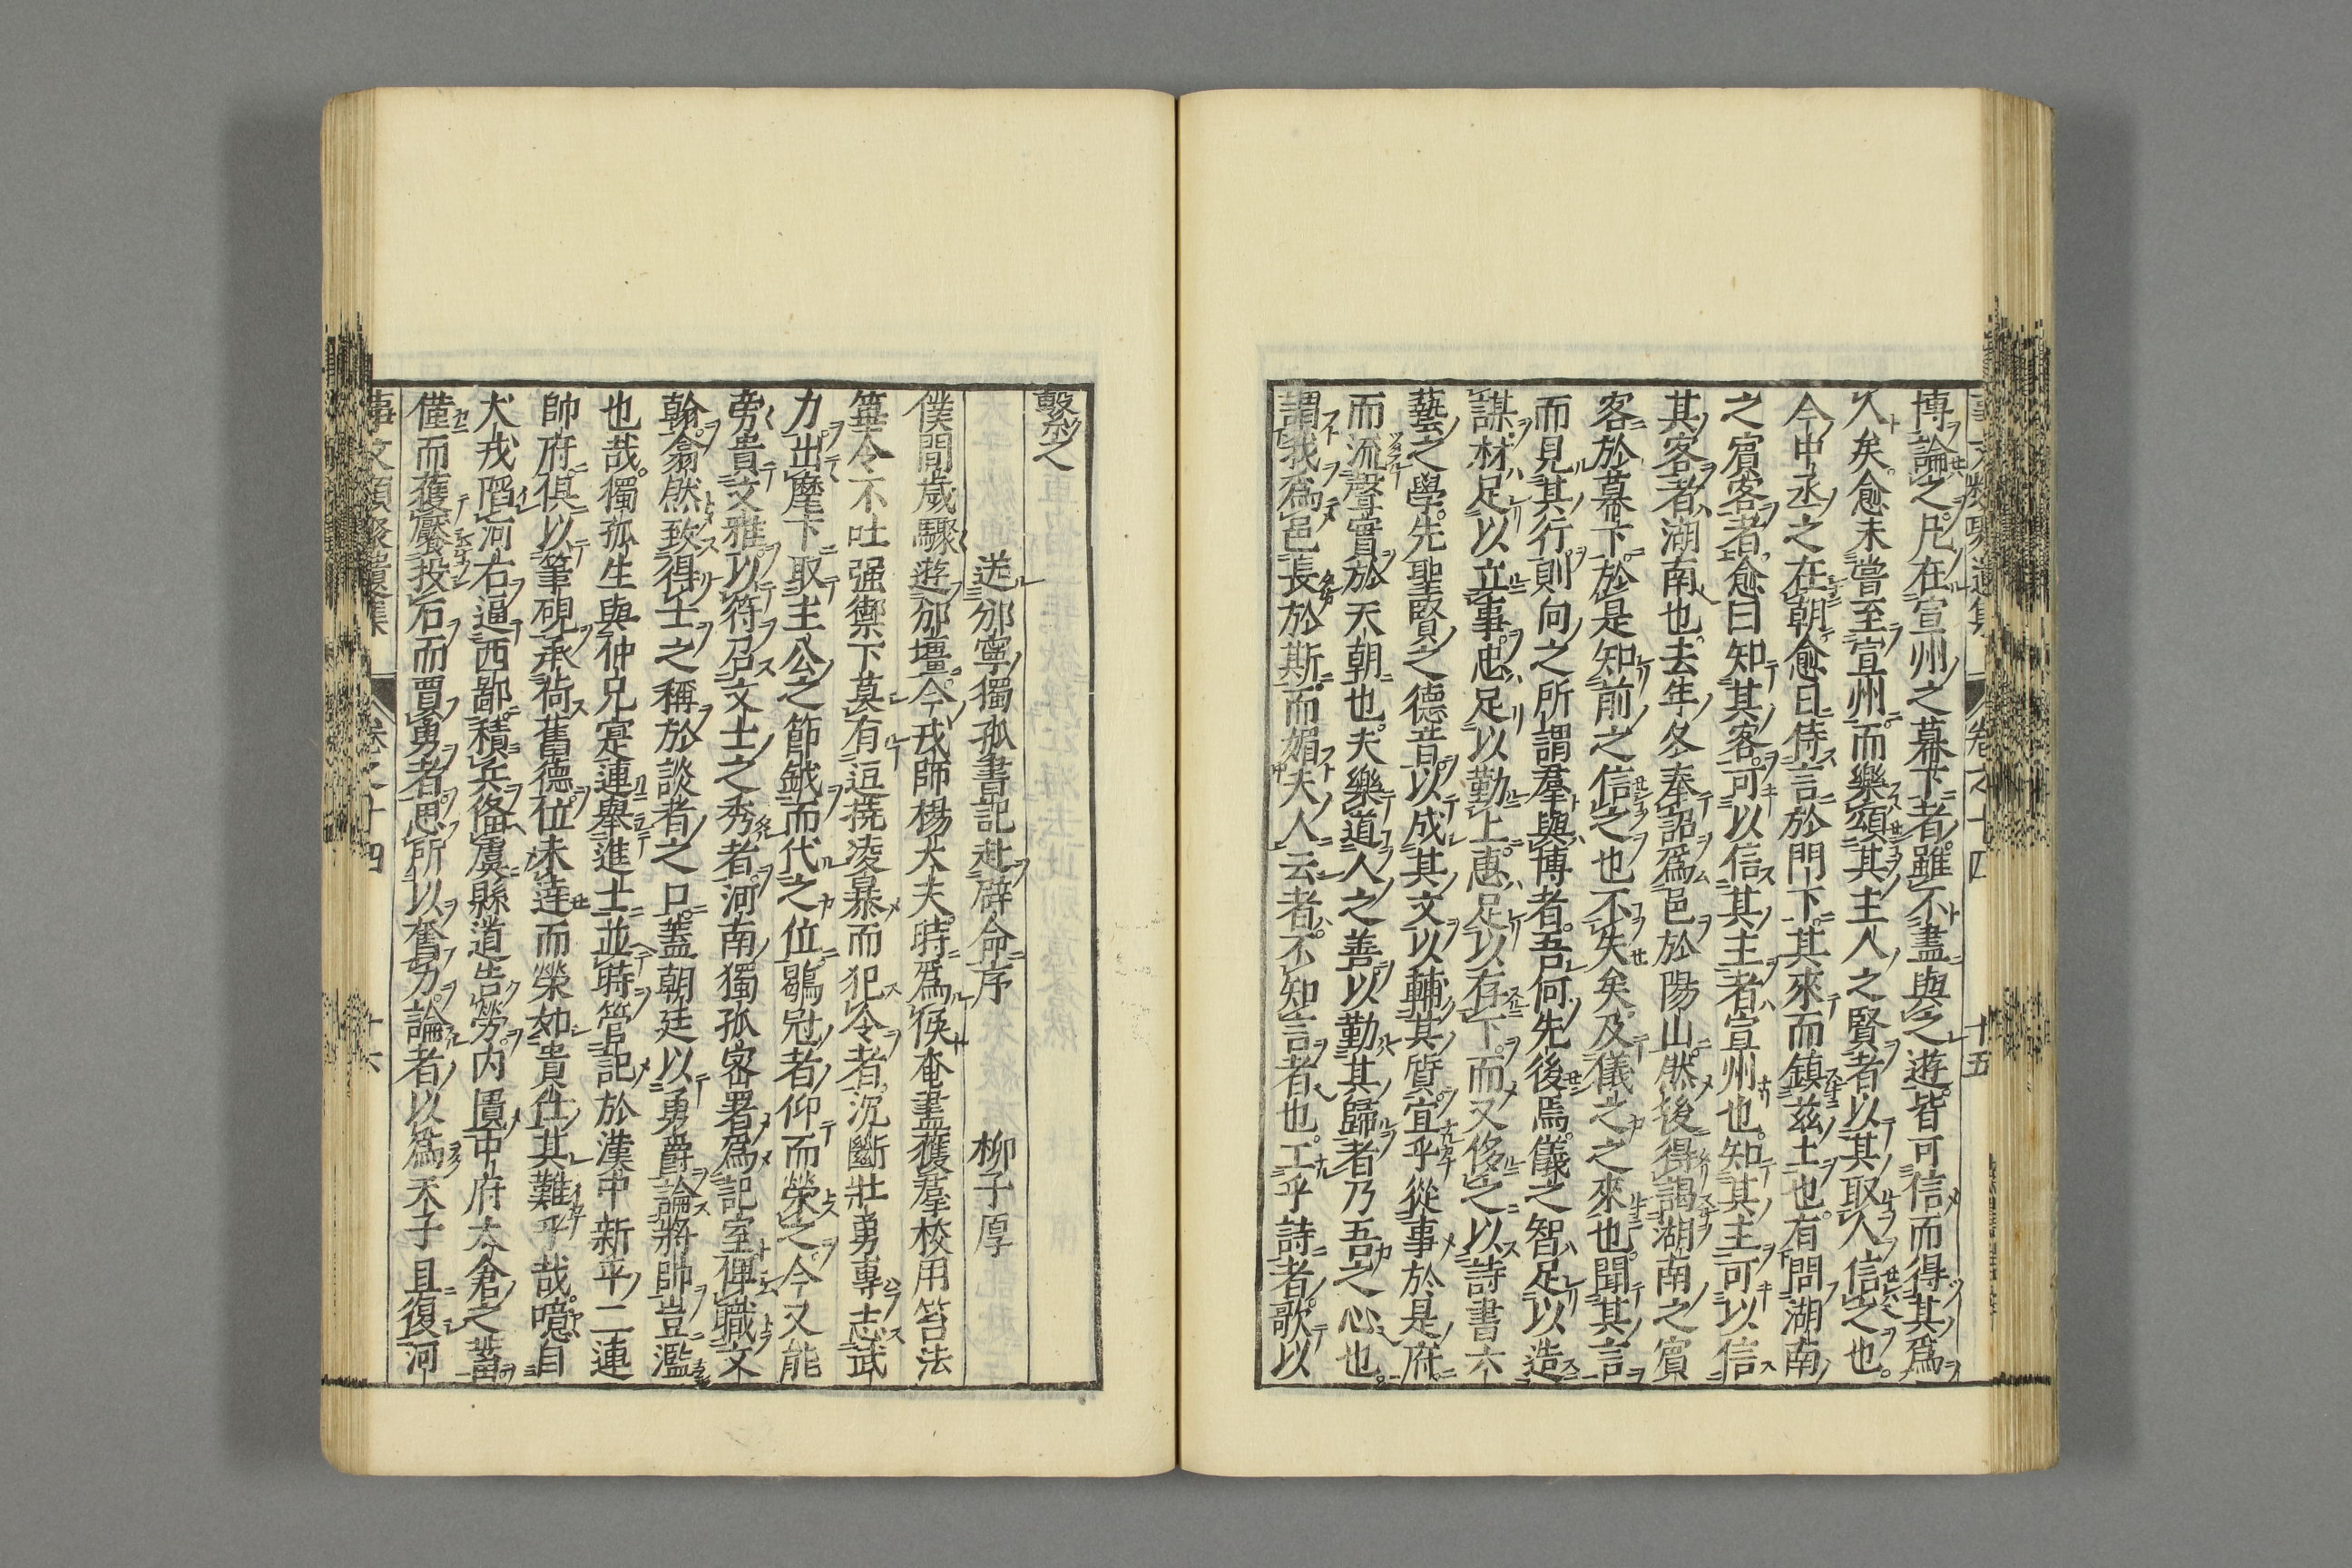 事文類聚遺集 卷之十四 十五
博論之凡在宣州之幕下者雖不盡與之遊皆可信而得其爲
人矣愈未嘗至宣州而樂頌其主人之賢者以其取人信之也
今中丞之在朝愈日侍言於門下其來而鎮兹土也有問湖南
之賓客者愈曰知其客可以信其主者宣州也知其主可以信
其客者湖南也去年冬奉詔爲邑於陽山然後得謁湖南之賓
客於幕下於是知前之信之也不失矣及儀之之來也聞其言
而見其行則向之所謂羣與博者吾何先後焉儀之智足以造
謀材足以立事忠足以勤上惠足以存下而又侈之以詩書六
藝之學先聖賢之德音以成其文以輔其質宜乎從事於是府
而流聲實於天朝也夫樂道人之善以勤其歸者乃吾之心也
謂我爲邑長於斯而媚夫人云者不知言者也工乎詩者歌以
繫之
送邠寧獨孤書記赴辟命序 柳子厚
僕間歲驟遊邠壃今戎師楊大夫時爲候奄盡獲羣校用笞法
箠令不吐强禦下莫有逗撓凌暴而犯令者沉斷壯勇專志武
力出麾下取主公之節鉞而代之位鶡冠者仰而榮之今又能
旁貴文雅以符召文士之秀者河南獨孤寀署爲記室俾職文
翰翕然致得士之稱於談者之口蓋朝廷以勇爵論將帥豈濫
也哉獨孤生與仲兄寔連舉進士並時管記於漢中新平二連
帥府俱以筆硯承荷舊德位未達而榮如貴仕其難乎哉噫自
犬戎陷河右逼西鄙積兵俻虞縣道告勞内匱中府太倉之蓄
僅而獲饜投石而賈勇者思所以奮力論者以爲天子且復河
事文類聚遺集 卷之十四 十六